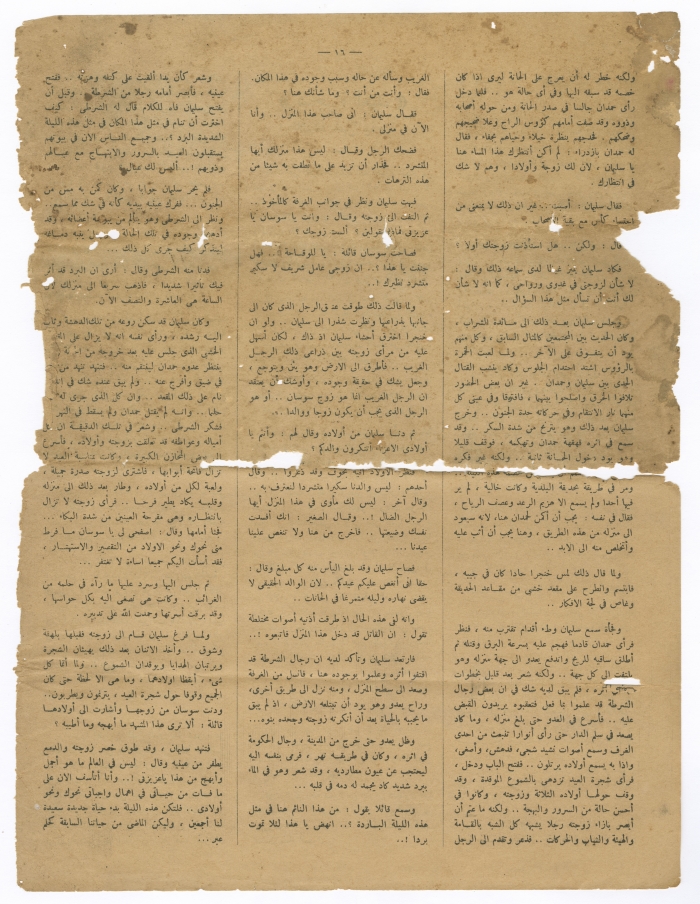 — ١٦ —
ولكنه خطر له أن يعرج على الحانة ليرى اذا كان
خصمه قد سبقه اليها وفي أى حالة هو .. فلما دخل
رأى حمدان جالسا في صدر الحانة ومن حوله أصحابه
وذووه وقد صفت أمامهم كؤوس الراح وعلا ضجيجهم
وضحكهم . فحدجهم بنظرة خيلاء وحياهم بجفاء ، فقال
له حمدان بازدراء : لم أكن أنتظرك هذا المساء هنا
يا سليمان ، لان لك زوجة وأولادا ، وهم لا شك
في انتظارك .
فقال سليمان : أصبت .. غير ان ذلك لا يمنعنى من
احتساء كأس مع بقية الاصحاب .
قال : ولكن .. هل استأذنت زوجتك أولا ؟
فكاد سليمان يتميز غيظا لدى سماعه ذلك وقال :
لا شأن لزوجتى في غدوى ورواحى ، كما انه لا شأن
لك أنت أن تسأل مثل هذا السؤال ..
وجلس سليمان بعد ذلك الى مائدة للشراب ،
وكان الحديث بين المجتمعين كالمثال السابق ، وكل منهم
يود أن يتفوق على الآخر .. ولما لعبت الخمرة
بالرؤوس اشتد احتدام الجلوس وكاد ينشب القتال
الجدى بين سليمان وحمدان . غير ان بعض الحضور
تلافوا الخرق وأصلحوا بينهما ، فافترقا وفي عينى كل
منهما نار الانتقام وفي حركاته حدة الجنون .. وخرج
سليمان بعد ذلك وهو يترنح من شدة السكر .. وقد
سمع في اثره قهقهة حمدان وتهكمه ، فوقف قليلا
وهو يود دخول الحانة ثانية .. ولكنه غير فكره
ومر في طريقه بحديقة البلدية وكانت خالية ، لم ير
فيها أحدا ولم يسمع الا هزيم الرعد وعصف الرياح ،
فقال في نفسه : يجب أن أكمن لحمدان هنا، لانه سيعود
الى منزله من هذه الطريق ، وهنا يجب أن أثب عليه
وأتخلص منه الى الابد ..
ولما قال ذلك لمس خنجرا حادا كان في جيبه ،
فابتسم وانطرح على مقعد خشبى من مقاعد الحديقة
وغاص في لجة الافكار ..
ولجأة سمع سليمان وطء أقدام تقترب منه ، فنظر
فرأى حمدان قادما فهجم عليه بسرعة البرق وقتله ثم
أطلق ساقيه للريح واندفع يعدو الى جهة منزله وهو
يلتفت الى كل جهة .. ولكنه شعر بعد قليل بخطوات
أثره ، فلم يبق لديه شك في ان بعض رجال
الشرطة قد علموا بما فعل فتعقبوه يريدون القبض
عليه .. فأسرع في العدو حتى بلغ منزله ، وما كاد
يصعد في سلم الدار حتى رأى أنوارا تنبعث من احدى
الغرف وسمع أصوات نشيد شجى، فدهش، وأصغى،
واذا به يسمع أولاده يرتلون .. ففتح الباب ودخل ،
فرأى شجرة العيد تزدهى بالشموع الموقدة ، وقد
وقف حولها أولاده الثلاثة وزوجته ، وكانوا في
أحسن حالة من السرور والبهجة .. ولكنه ما عتم أن
أبصر بازاء زوجته رجلا يشبهه كل الشبه بالقامة
والهيئة والثياب والحركات .. فذعر وتقدم الى الرجل
الغريب وسأله عن حاله وسبب وجوده في هذا المكان.
فقال : وأنت من أنت ؟ وما شأنك هنا ؟
فقال سليمان : انى صاحب هذا المنزل .. وأنا
الآن في منزلى .
فضحك الرجل وقال : ليس هذا منزلك أيها
المتشرد .. فحذار أن تزيد على ما نطقت به شيئا من
هذه الترهات .
فبهت سليمان ونظر في جوانب الغرفة كالمأخوذ ..
ثم التفت الى زوجته وقال : وأنت يا سوسان يا
عزيزتى فماذا تقولين ؟ ألست زوجك ؟
فصاحت سوسان قائلة : يا للوقاحة .. فهل
جننت يا هذا ؟.. ان زوجى عاقل شريف لا سكير
متشرد نظيرك !..
ولما قالت ذلك طوقت عنق الرجل الذى كان الى
جانبها بذراعيها ونظرت شذرا الى سليمان .. ولو ان
خنجرا اخترق أحشاء سليمان اذ ذاك ، لكان أسهل
عليه من مرأى زوجته بين ذراعى ذلك الرجل
الغريب .. فأطرق الى الارض وهو يئن ويتوجع ،
وجعل يشك في حقيقة وجوده ، وأوشك أن يعتقد
ان الرجل الغريب انما هو زوج سوسان .. أو هو
الرجل الذى يجب أن يكون زوجا ووالدا .
ثم دنا سليمان من أولاده وقال لهم : وأنتم يا
أولادى الاعزاء أتنكرون والدكم ؟
فنظر الاولاد اليه بخوف وقد ذعروا .. وقال
أحدهم : ليس والدنا سكيرا متشردا لنعترف به ..
وقال آخر : ليس لك مأوى في هذا المنزل أيها
الرجل الضال !.. وقال الصغير : انك أفسدت
نفسك وضيعتها .. فاخرج من هنا ولا تنغص علينا
عيدنا ...
فصاح سليمان وقد بلغ اليأس منه كل مبلغ وقال :
حقا انى أنغص عليكم عيدكم .. لان الوالد الحقيقى لا
يقضى نهاره وليله متمرغا في الحانات ..
وانه لفى هذه الحال اذ طرقت أذنيه أصوات مختلطة
تقول : ان القاتل قد دخل هذا المنزل فاتبعوه !..
فارتعد سليمان وتأكد لديه ان رجال الشرطة قد
اقتفوا أثره وعلموا بوجوده هنا ، فانسل من الغرفة
وصعد الى سطح المنزل ، ومنه نزل الى طريق أخرى،
وراح يعدو وهو يود أن تبتلعه الارض ، اذ لم يبق
ما يحببه بالحياة بعد أن أنكرته زوجته وجحده بنوه...
وظل يعدو حتى خرج من المدينة ، وجال الحكومة
في اثره ، وكان في طريقه نهر ، فرمى بنفسه اليه
ليحتجب عن عيون مطارديه ، وقد شعر وهو في الماء
ببرد شديد كاد يجمد له دمه في قلبه ...
وسمع قائلا يقول : من هذا النائم هنا في مثل
هذه الليلة الباردة ؟.. انهض يا هذا لئلا تموت
بردا !..
وشعر كأن يدا ألقيت على كتفه وهزته .. ففتح
عينيه ، فأبصر أمامه رجلا من الشرطة .. وقبل أن
يفتح سليمان فاه للكلام قال له الشرطى : كيف
اخترت أن تنام في مثل هذا المكان في مثل هذه الليلة
الشديدة البرد ؟.. وجميع الناس الآن في بيوتهم
يستقبلون العيد بالسرور والابتهاج مع عيالهم
وذويهم !.. أليس لك عيال
فلم يحر سليمان جوابا ، وكان كمن به مس من
الجنون ... ففرك عينيه بيديه كأنه في شك مما سمع..
ونظر الى الشرطى وهو يتألم من يبوسة أعضائه ، وقد
أدهشه وجوده في تلك الحالة يقف به دماغه
ليتذكر كيف جرى كل ذلك ...
فدنا منه الشرطى وقال : أرى ان البرد قد أثر
فيك تأثيرا شديدا ، فاذهب سريعا الى منزلك لان
الساعة هي العاشرة والنصف الآن.
وكان سليمان قد سكن روعه من تلك الدهشة وثاب
اليه رشده ، ورأى نفسه انه لا يزال على
الخشبى الذى جلس عليه بعد خروجه من الحانة
ينتظر عدوه حمدان لينتقم منه .. فتنهد تنهد من
في ضيق وأفرج عنه .. ولم يبق عنده شك في انه
نام على ذلك المقعد .. وان كل الذى جرى له
حلما .. وانه لم يقتل حمدان ولم يسقط في النهر
فشكر الشرطى .. وشعر في تلك الدقيقة ان كل
أمياله وعواطفه قد تعلقت بزوجته وأولاده ، فأسرع
الى بعض المخازن الكبيرة ، وكانت
تزال فاتحة أبوابها ، فاشترى لزوجته صدرة جميلة ،
ولعبة لكل من أولاده ، وطار بعد ذلك الى منزله
وقلبه يكاد يطير فرحا .. فرأى زوجته لا تزال
بانتظاره وهى مقرحة العينين من شدة البكاء ...
فجثا أمامها وقال : اصفحى لى يا سوسان ما فرط
منى نحوك ونحو الاولاد من التقصير والاستهتار ،
فقد أسأت اليكم جميعا اساءة لا تغتفر ...
ثم جلس اليها وسرد عليها ما رآه في حلمه من
الغرائب .. وكانت هى تصغى اليه بكل حواسها ،
وقد برقت أسرتها وحمدت الله على تدبيره .
ولما فرغ سليمان قام الى زوجته فقبلها بلهفة
وشوق .. وأخذ الاثنان بعد ذلك يهيئان الشجرة
ويرتبان الهدايا ويوقدان الشموع .. ولما أتما كل
شىء ، أيقظا أولادهما ، وما هى الا لحظة حتى كان
الجميع وقوفا حول شجرة العيد ، يترنمون ويطربون..
ودنت سوسان من زوجها وأشارت الى أولادها
قائلة : ألا ترى هذا المشهد ما أبهجه وما أطيبه ؟
فتنهد سليمان ، وقد طوق خصر زوجته والدمع
يطفر من عينيه وقال : ليس في العالم ما هو أجمل
وأبهج من هذا يا عزيزتى !.. وأنا أتأسف الان على
ما فات من حياتى في اهمال واجباتى نحوك ونحو
أولادى .. فلتكن هذه الليلة بدء حياة جديدة سعيدة
لنا أجمعين ، وليكن الماضى من حياتنا السابقة كحلم
عبر ...